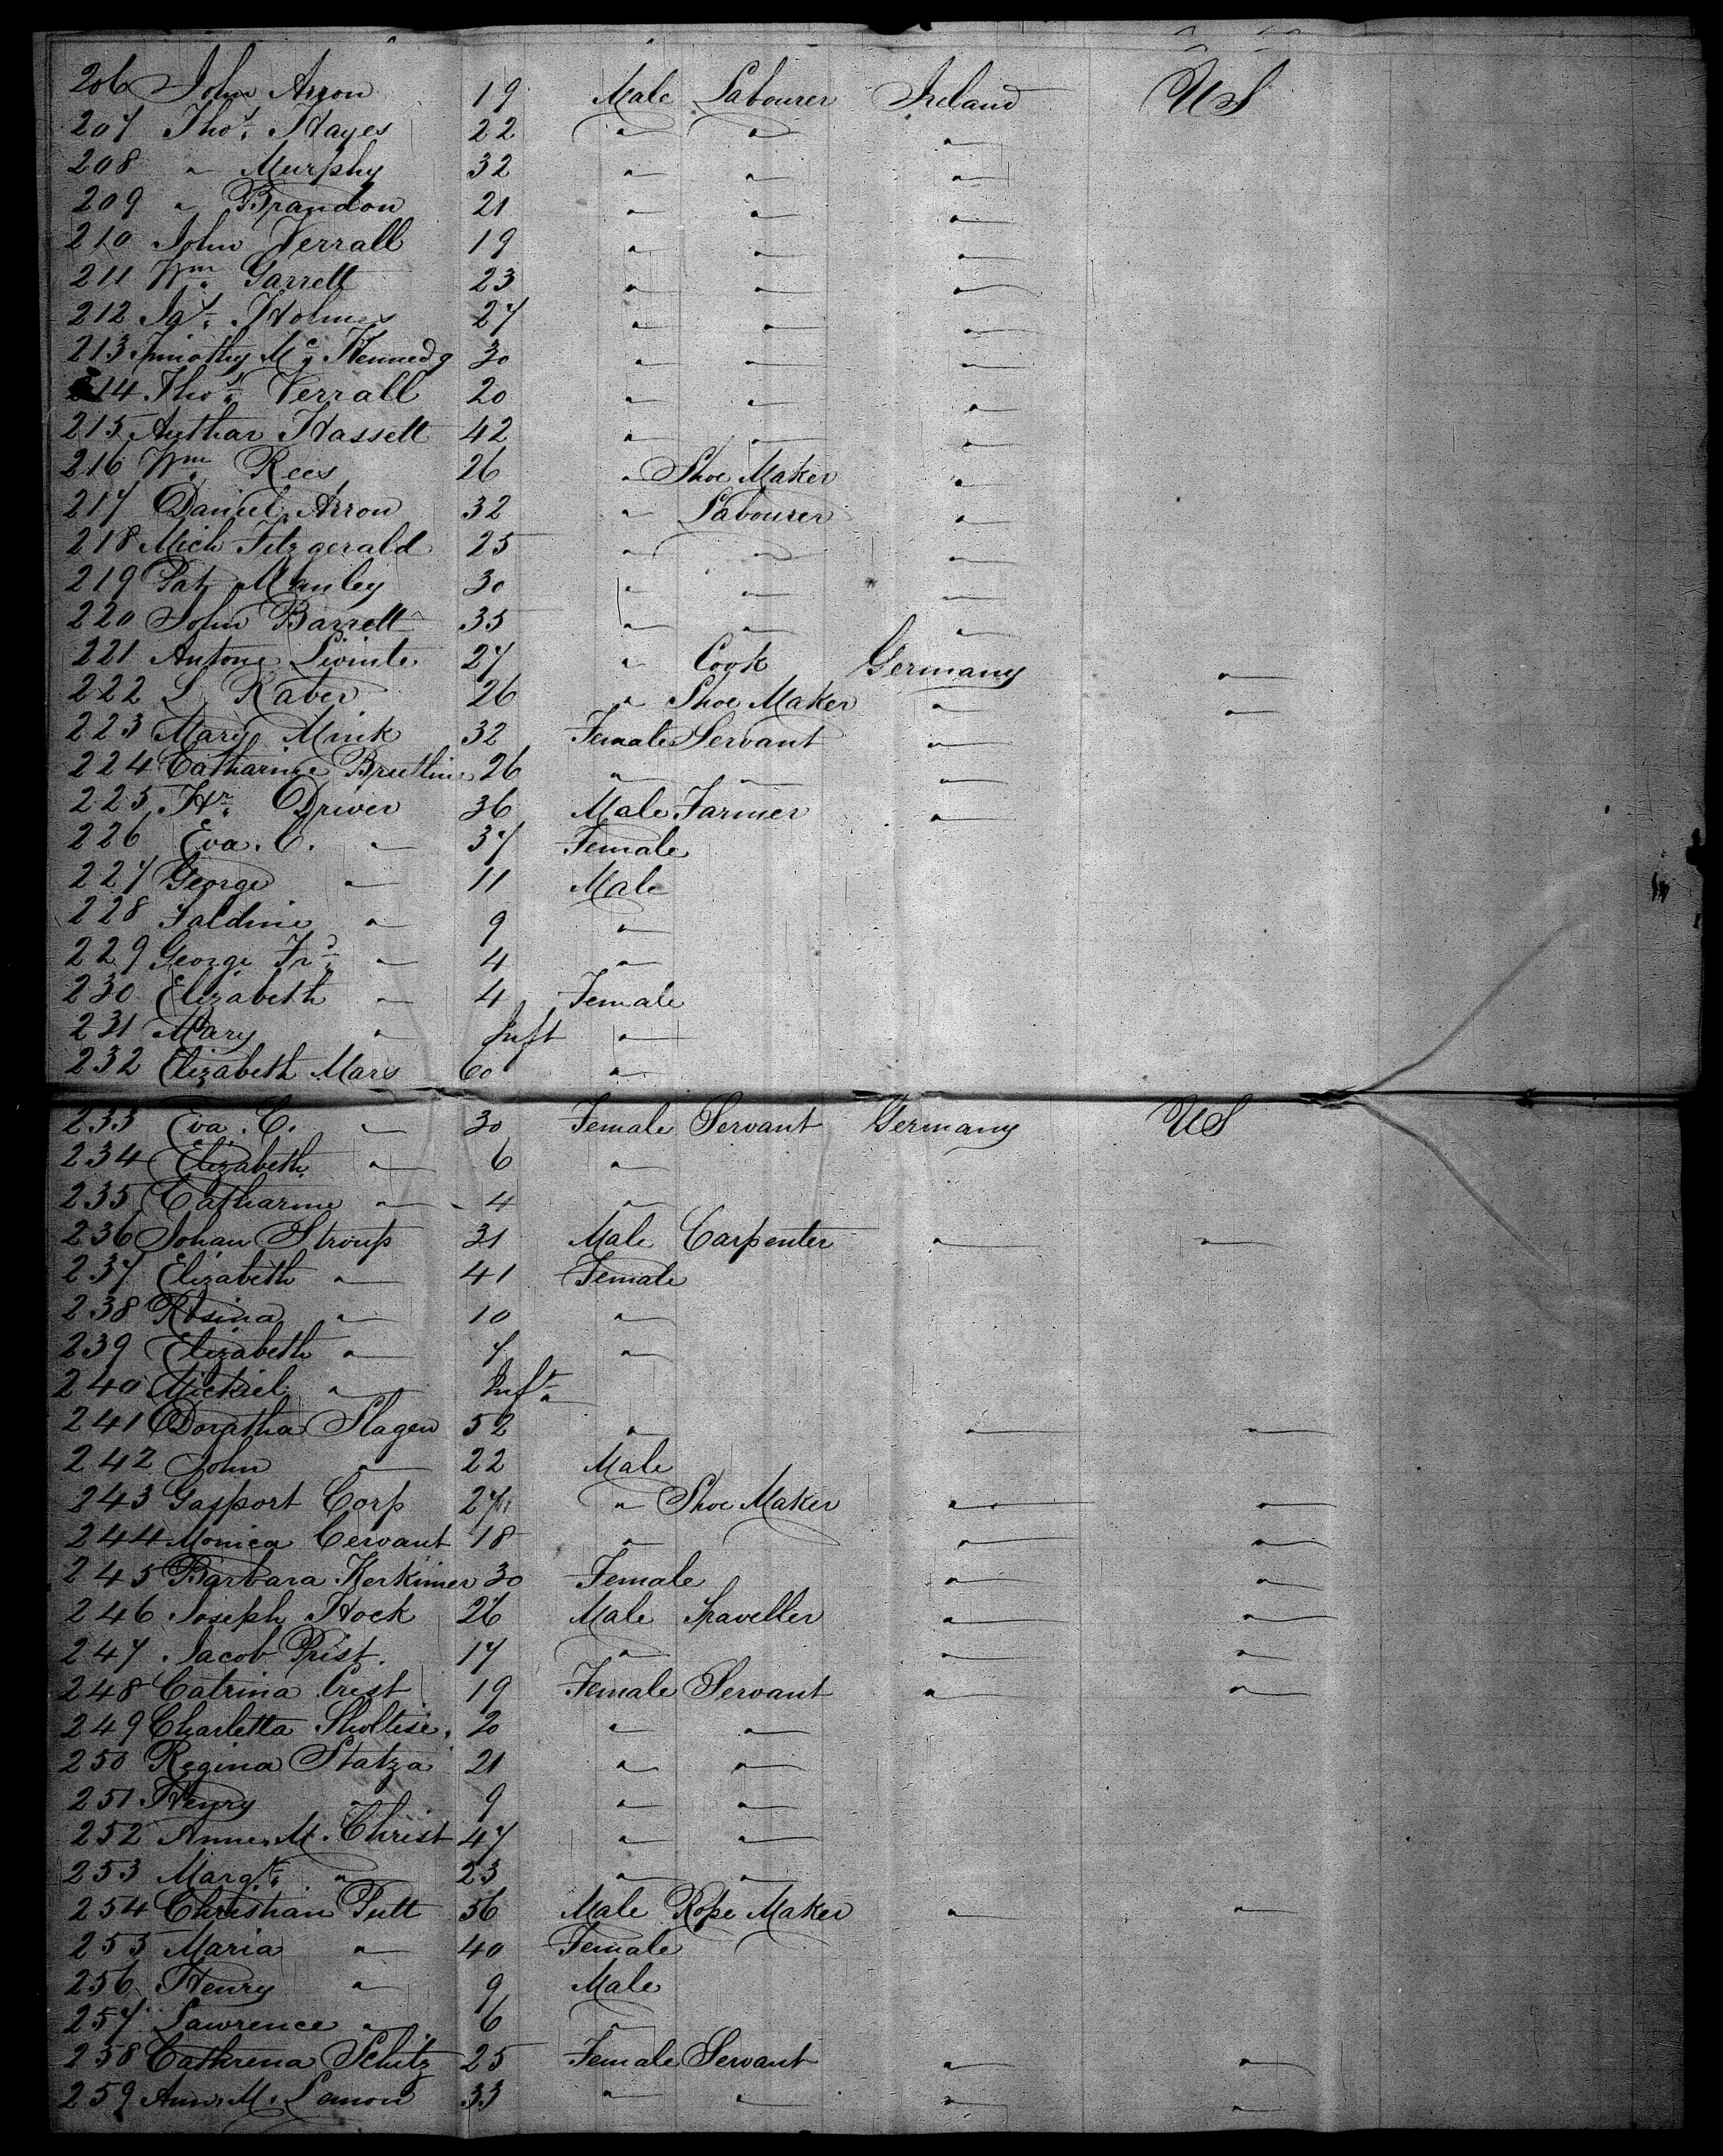 206 John Arron 19 Male Labourer Ireland US
207 Thos. Hayes 22 " " "
208 " Murphy 32 " " "
209 " Brandon 21 " " "
210 John Verrall 19 " " "
211 Wm. Garrett 23 " " "
212 Jas. Holmes 27 " " "
213 Timothy Mc Kennedy 30 " " "
214 Thos. Verrall 20 " " "
215 Authar Hassett 42 " " "
216 Wm. Rees 26 " Shoe Maker "
217 Daniel Arron 32 " Labourer "
218 Mich Fitzgerald 25 " " "
219 Pat Manley 30 " " "
220 John Barrett 35 " " "
221 Antone 27 " Cook Germany "
222 L Raber 26 " Shoe Maker " "
223 Mary Mink 32 Female Servant "
224 Catharine 26 " " "
225 Hr. Driver 36 Male Farmer "
226 Eva. C. " 37 Female
227 George " 11 Male
228 " 9 "
229 George Fr. " 4 "
230 Elizabeth " 4 Female
231 Mary " Inft "
232 Elizabeth Mars 60 "
233 Eva. C. " 30 Female Servant Germany US
234 Elizabeth " 6 "
235 Catharine " 4 "
236 Johan Stroup 31 Male Carpenter " "
237 Elizabeth " 41 Female
238 Rosina " 10 "
239 Elizabeth " 7 "
240 Mickiel " Inft "
241 Doratha Slagen 52 " " "
242 John " 22 Male
243 Gasport Corp 27 " Shoe Maker " "
244 Monica Cervant 18 " " "
245 Barbara Kerkimer 30 Female " "
246 Joseph Hock 26 Male Traveller " "
247 Jacob Prist. 17 " " "
248 Catrina Crist 19 Female Servant " "
249 Charletta 20 " "
250 Regina Statza 21 " "
251 Henry " 9 " "
252 Anne. M. Christ 47 " "
253 Margt. " 23 " "
254 Christian Putt 56 Male Rope Maker " "
255 Maria " 40 Female
256 Henry " 9 Male
257 Lawrence " 6 "
258 Cathrena Schitz 25 Female Servant " "
259 Ann. M. Lamon 33 " " " "